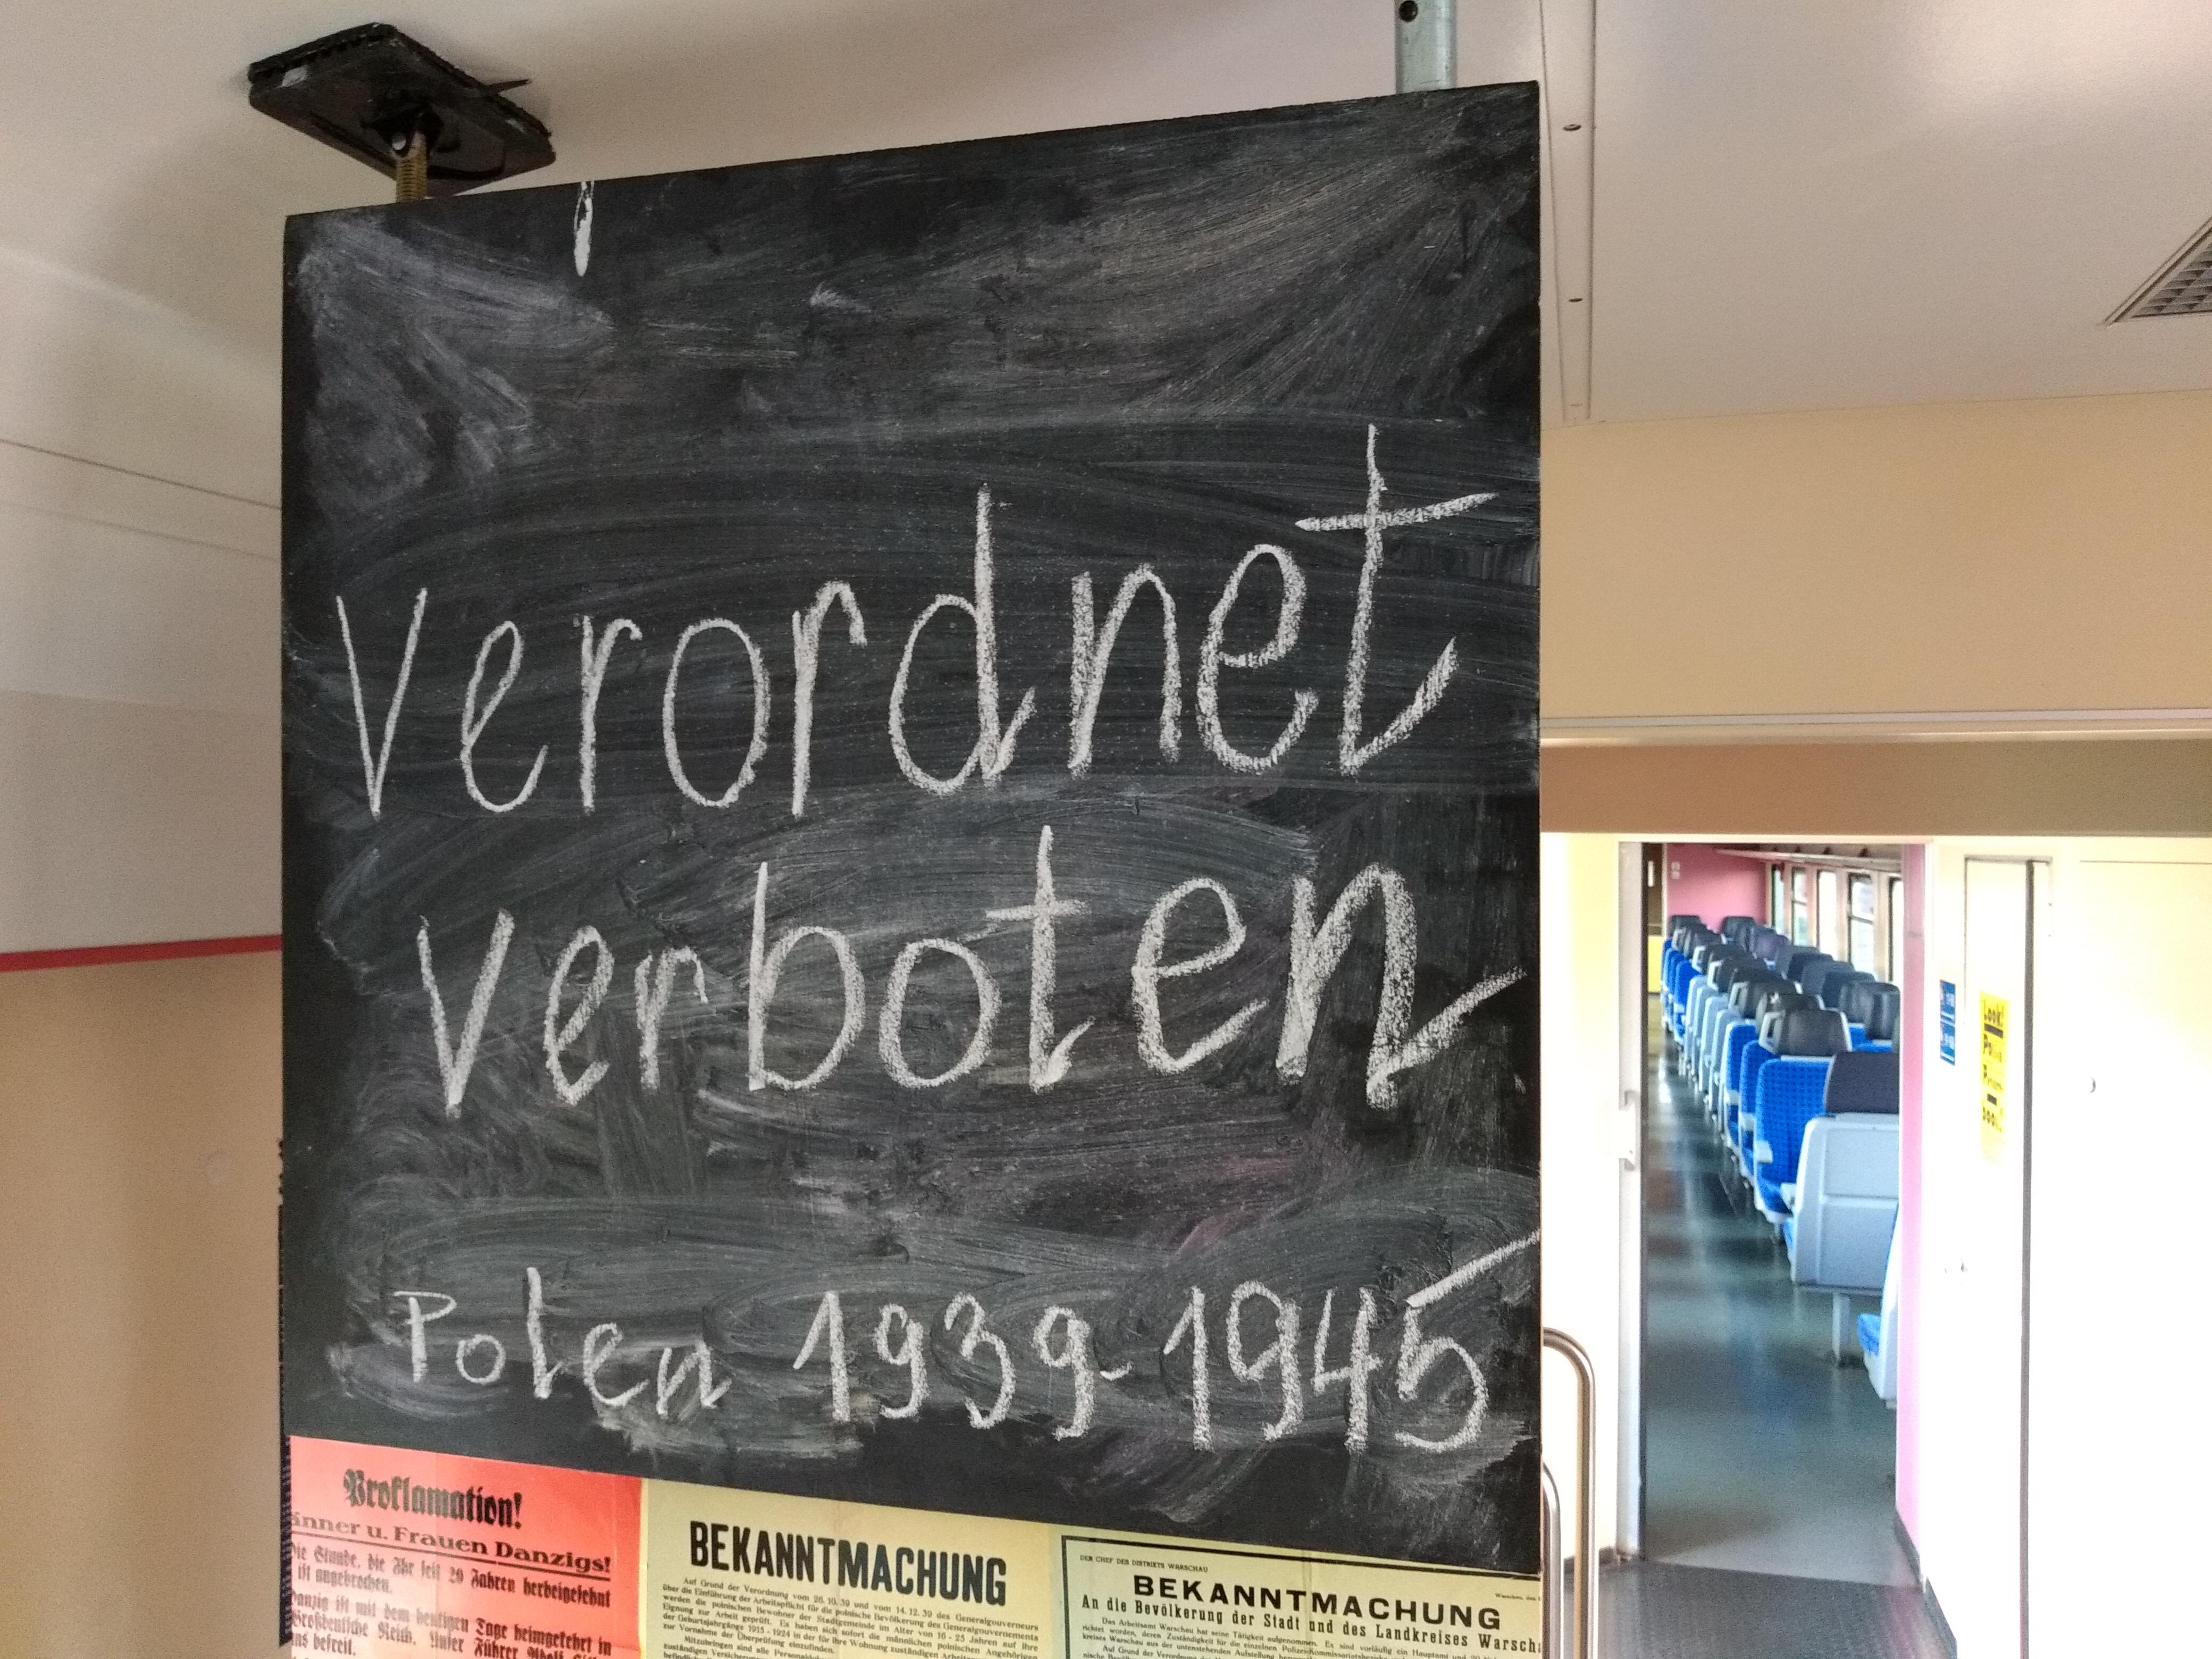 verordnet
verboten
Polen 1939-1945
Proklamation!
änner u. Frauen Danzigs!
die Stunde, die Ihr seit 20 Jahren herbeigesehnt
ist angebrochen.
Danzig ist mit dem heutigen Tage heimgekehrt in
Großdeutsche Reich. Unser Führer Adolf
uns befreit.
BEKANNTMACHUNG
Auf Grund der Verordnung vom 26. 10. 39 und vom 14. 12. 39 des Generalgouverneurs
über die Einführung der Arbeitspflicht für die polnische Bevölkerung des Generalgouvernements
werden die polnischen Bewohner der Stadtgemeinde im Alter von 16 - 25 Jahren auf ihre
Eignung zur Arbeit geprüft. Es haben sich sofort die männlichen polnischen Angehörigen
der Geburtsjahrgänge 1915 - 1924 in der für ihre Wohnung zuständigen
zur Vornahme der Überprüfung einzufinden.
Mitzubringen sind alle
DER CHEF DES DISTRIKTS WARSCHAU
Warschau, den
BEKANNTMACHUNG
An die Bevölkerung der Stadt und des Landkreises Warsch
Das Arbeitsamt Warschau hat seine Tätigkeit aufgenommen. Es sind vorläufig ein Hauptamt und 20
richtet worden, deren Zuständigkeit für die einzelnen Polizei-Kommissariatsbezirke
kreises Warschau aus der untenstehenden Aufstellung
Auf Grund der Verordnung
Look!